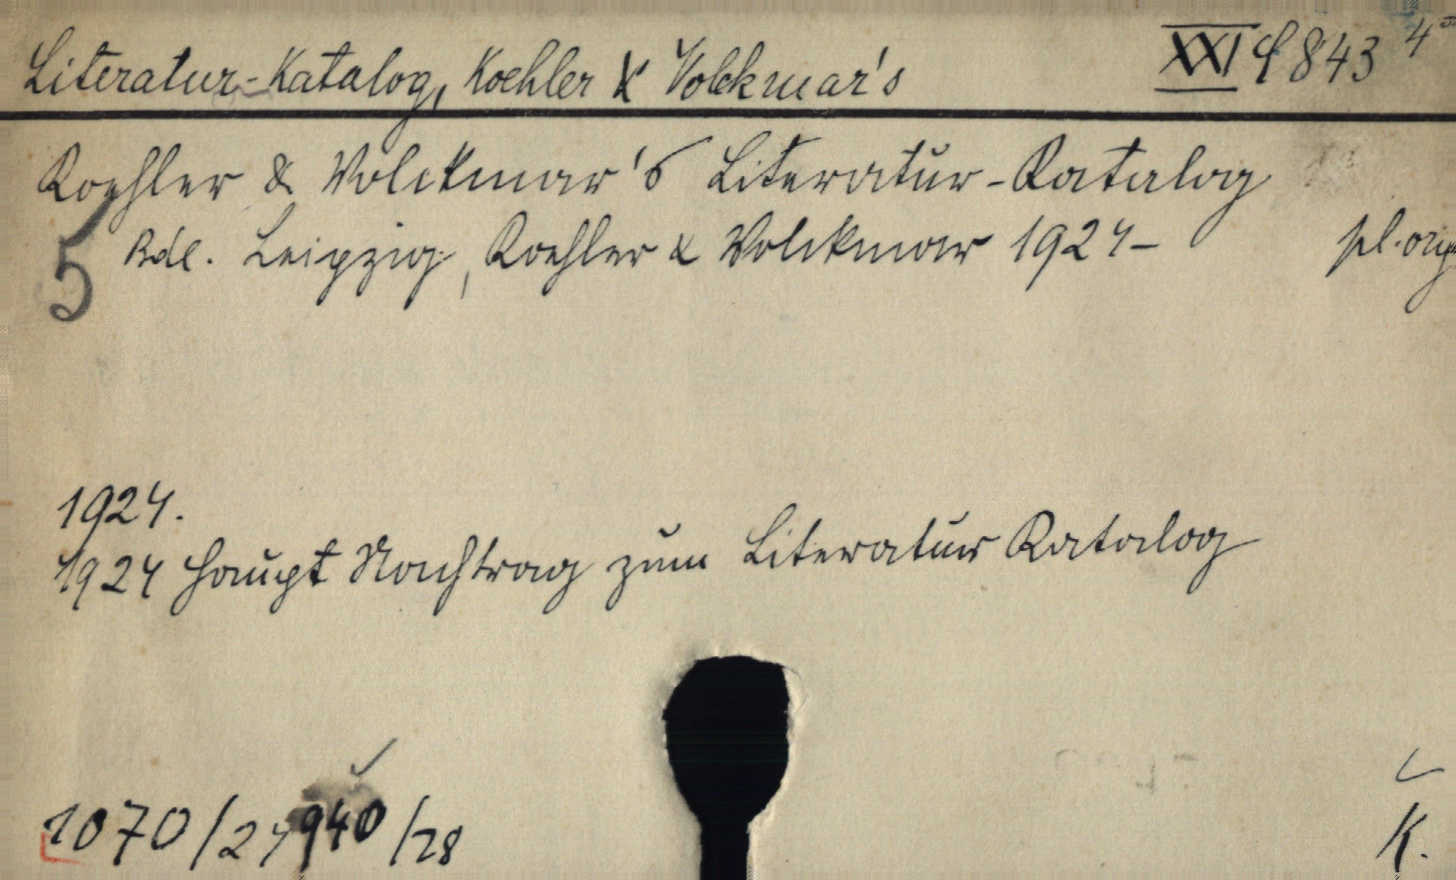 Literatur-Katalog, Koehler & Volckmar's XXI 4843 4°
Koehler & Volckmar's Literatur-Katalog
5 Bde. Leipzig, Koehler & Volckmar 1924- pl. orig
1924.
1924 Haupt Nachtrag zum Literatur Katalog
1070/24 940/28
K.